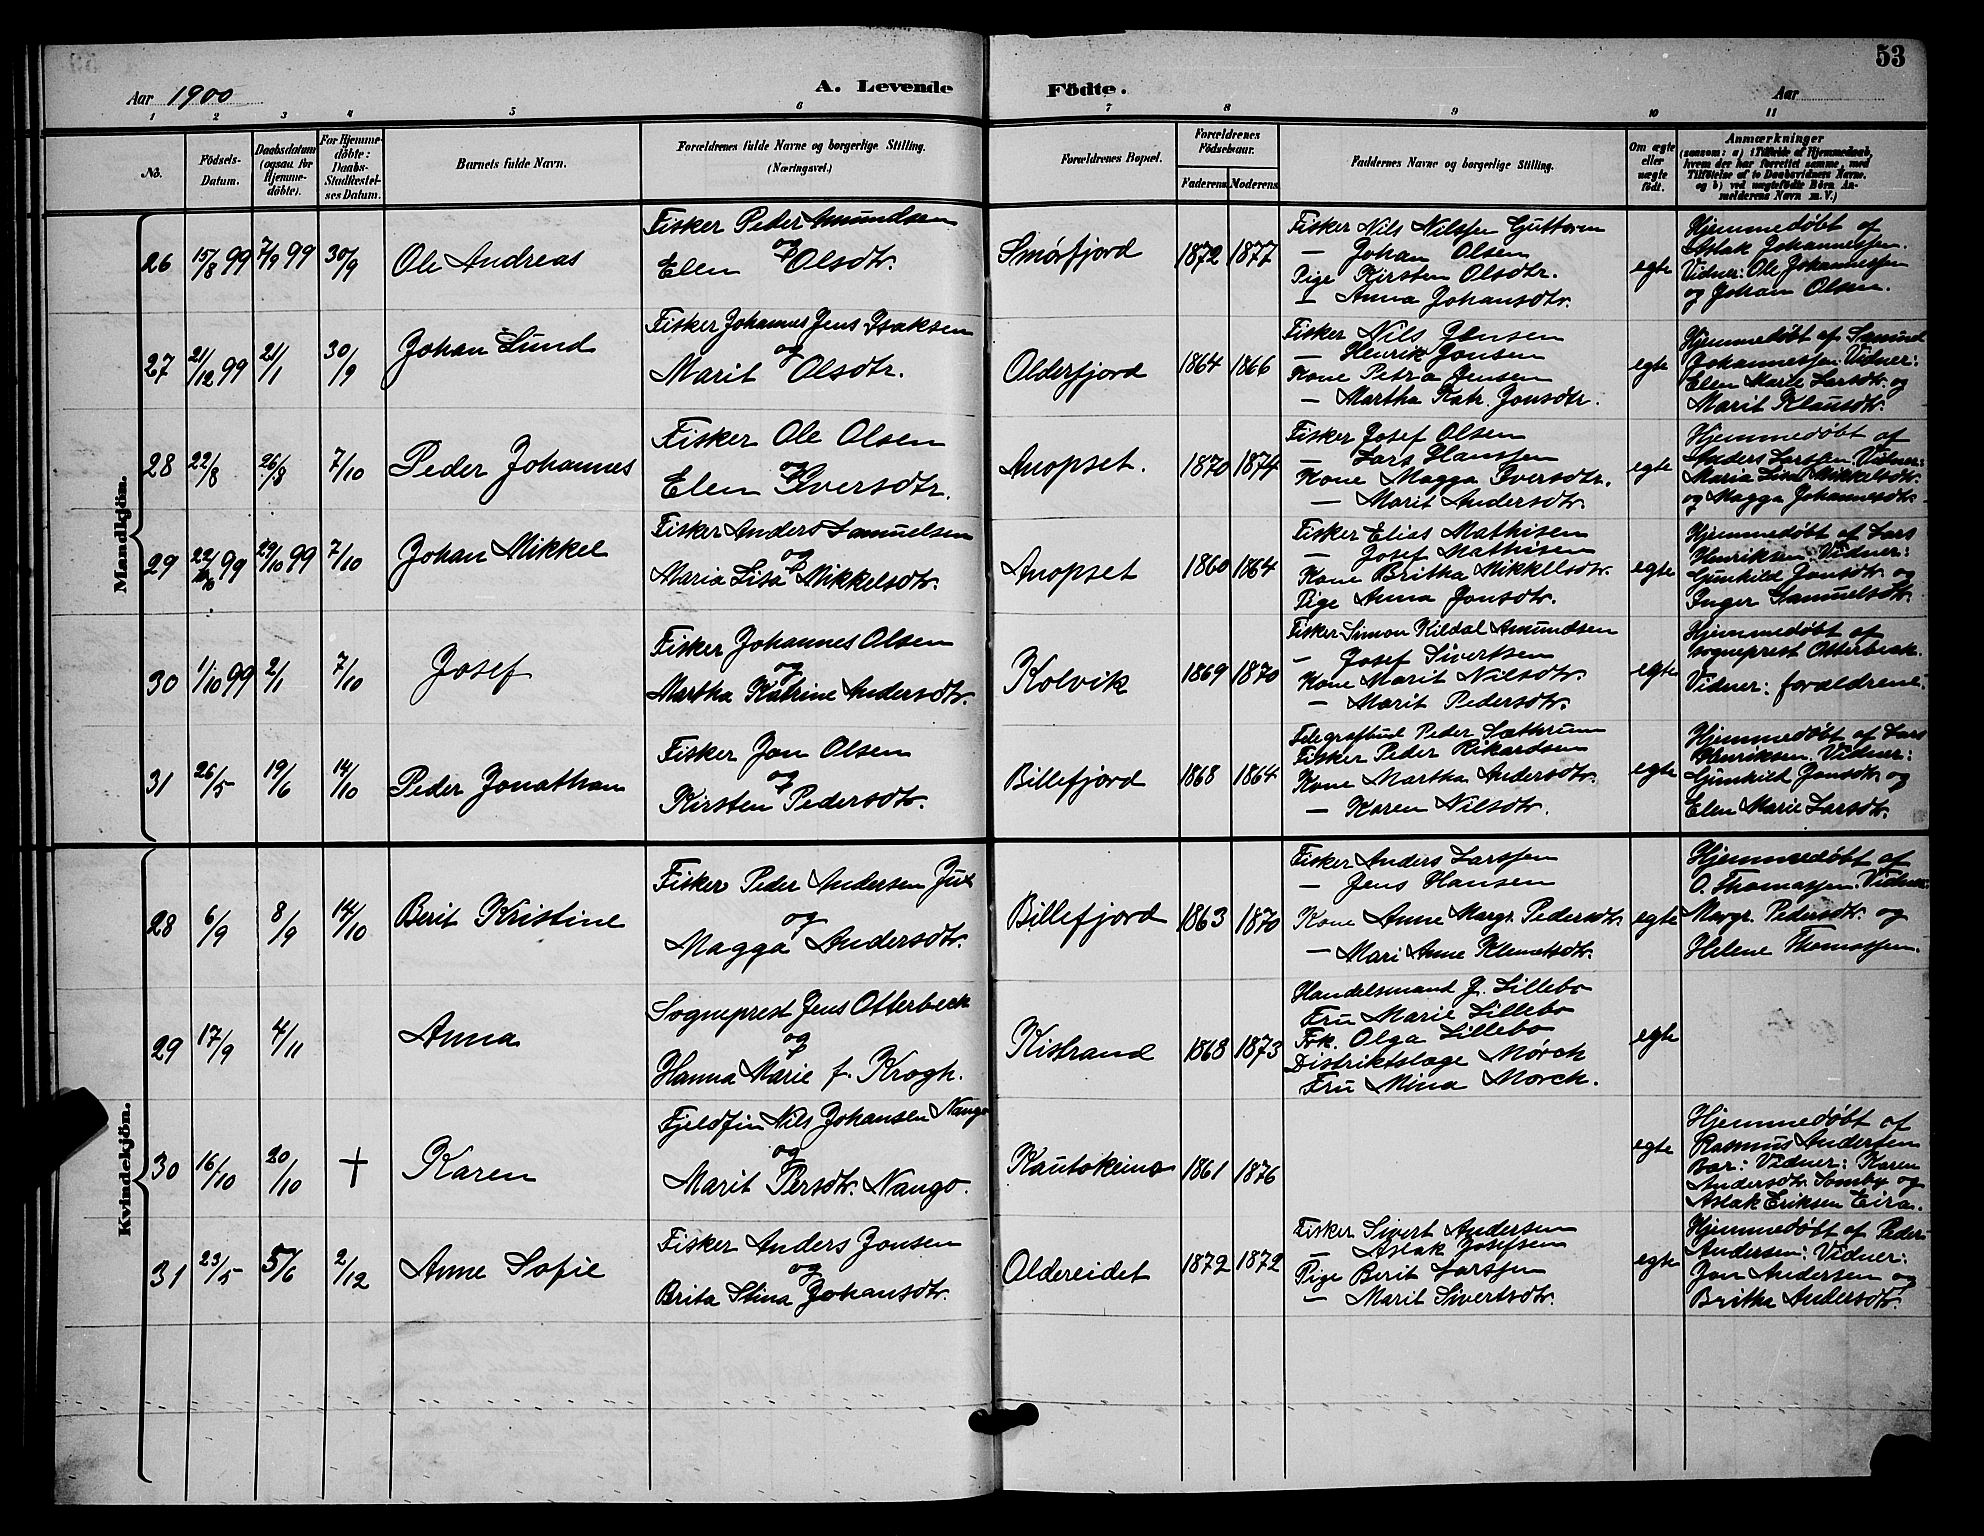 53
Aar 1900
A. Levende Födte.
Aar
1 2 3 4 5 6 7 8 9 10 11
No.
Födsels-Datum.
Daabsdatum (ogsaa for Hjemme-döbte).
For Hjemme-döbte: Daabs-Stadfæstel-ses Datum.
Barnets fulde Navn.
Forældrenes fulde Navne og borgerlige Stilling. (Næringsvei.)
Forældrenes Bopæl.
Forældrenes Födselsaar.
Faderens
Moderens
Faddernes Navne og borgerlige Stilling.
Om ægte eller uægte födt.
Anmærkninger
(saasom: a) i Tilfælde af Hjemmedaab,
hvem der har forrettet samme, med
Tilföielse af to Daabsvidners Navne,
og b) ved uægtefödte Börn An-
melderens Navn m. V.)
Mandkjön.
26 15/8 99 7/9 99 30/9 Ole Andreas
Fisker Peder Amundsen
og
Elen Olsdtr.
Smørfjord 1872 1877
Fisker Nils Nilssen Guttorm
— Johan Olsen
Pige Kirsten Olsdtr.
— Anna Johansdtr.
egte
Hjemmedøbt af
Aslak Johannessen.
Vidner: Ole Johannessen
og Johan Olsen.
27 21/12 99 21/1 30/9 Johan Lund
Fisker Johannes Jens Isaksen
og
Marit Olsdtr.
Olderfjord 1864 1866
Fisker Nils Jensen
— Henrik Jonsen
Kone Petra Jensen
— Martha Katr. Jonsdtr.
egte
Hjemmedøbt af Samuel
Johannessen. Vidner:
Elen Marie Larsdtr. og
Marit Klausdtr.
28 22/8 26/8 7/10 Peder Johannes
Fisker Ole Olsen
og
Elen Iversdtr.
Anopset. 1870 1874
Fisker Josef Olsen
— Lars Hanssen
Kone Magga Iversdtr.
— Marit Andersdtr.
egte
Hjemmedøbt af
Anders Larssen. Vidner:
Maria Lisa Mikkelsdtr.
og Magga Johannesdtr.
29 22/10 99 29/10 99 7/10 Johan Mikkel
Fisker Anders Samuelsen
og
Maria Lisa Mikkelsdtr.
Anopset 1860 1864
Fisker Elias Mathisen
— Josef Mathisen
Kone Britha Mikkelsdtr.
Pige Anna Jonsdtr.
egte
Hjemmedøbt af Lars
Henriksen. Vidner:
Gunhild Jonsdtr. og
Inger Samuelsdtr.
30 1/10 99 2/1 7/10 Josef
Fisker Johannes Olsen
og
Martha Katrine Andersdtr.
Kolvik 1869 1870
Fisker Simon Kildal Amundsen
— Josef Sivertsen
Kone Marit Nilsdtr.
— Marit Pedersdtr.
egte
Hjemmedøbt af
sogneprest Otterbeck.
Vidner: forældrene.
31 26/5 19/6 14/10 Peder Jonathan
Fisker Jon Olsen
og
Kirsten Pedersdtr.
Billefjord 1868 1864
Telegrafbud Peder Sæthrum
Fisker Peder Rikardsen
Kone Martha Andersdtr.
— Karen Nilsdtr.
egte
Hjemmedøbt af Lars
Henriksen. Vidner:
Gunhild Jonsdtr. og
Elen Marie Larsdtr.
Kvindekjön.
28 6/9 8/9 14/10 Berit Kristine
Fisker Peder Andersen Jux
og
Magga Andersdtr.
Billefjord 1863 1870
Fisker Anders Larssen
— Jens Hansen
Kone Anne Margr. Pedersdtr.
— Mari Anne Klemetsdtr.
egte
Hjemmedøbt af
O. Thomassen. Vidner:
Margr. Pedersdtr. og
Helene Thomassen.
29 17/9 4/11 Anna
Sogneprest Jens Otterbeck
og
Hanna Marie f. Krogh.
Kistrand 1868 1873
Handelsmand J. Lillebo
Fru Marie Lillebo
Frk. Olga Lillebo
Distriktslæge Mørch
Fru Mina Mørch.
egte
30 16/10 20/10 † Karen
Fjeldfin Nils Johansen Nango
og
Marit Persdtr. Nango.
Kautokeino 1861 1876
egte
Hjemmedøbt af
Rasmus Andersen
Bær: Vidner: Karen
Andersdtr. Somby og
Aslak Eriksen Eira.
31 23/5 5/6 2/12 Anne Sofie
Fisker Anders Jonsen
og
Brita Stina Johansdtr.
Oldereidet 1872 1872
Fisker Sivert Andersen
— Aslak Josefsen
Pige Berit Larssen
— Marit Sivertsdtr.
egte
Hjemmedøbt af Peder
Andersen: Vidner:
Jon Andersen og
Britha Andersdtr.